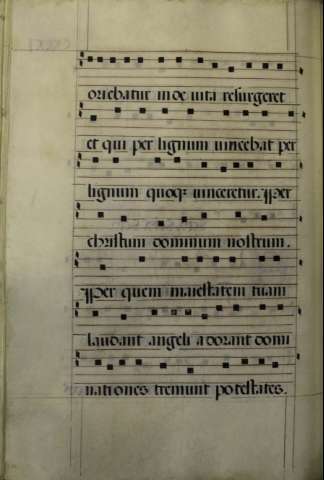 oriebatur inde uita resurgeret
et qui per lignum uincebat per
lignum quoq; uinceretur. Per
christum dominum nostrum.
Per quem maiestatem tuam
laudant angeli adorant domi
nationes tremunt potestates.